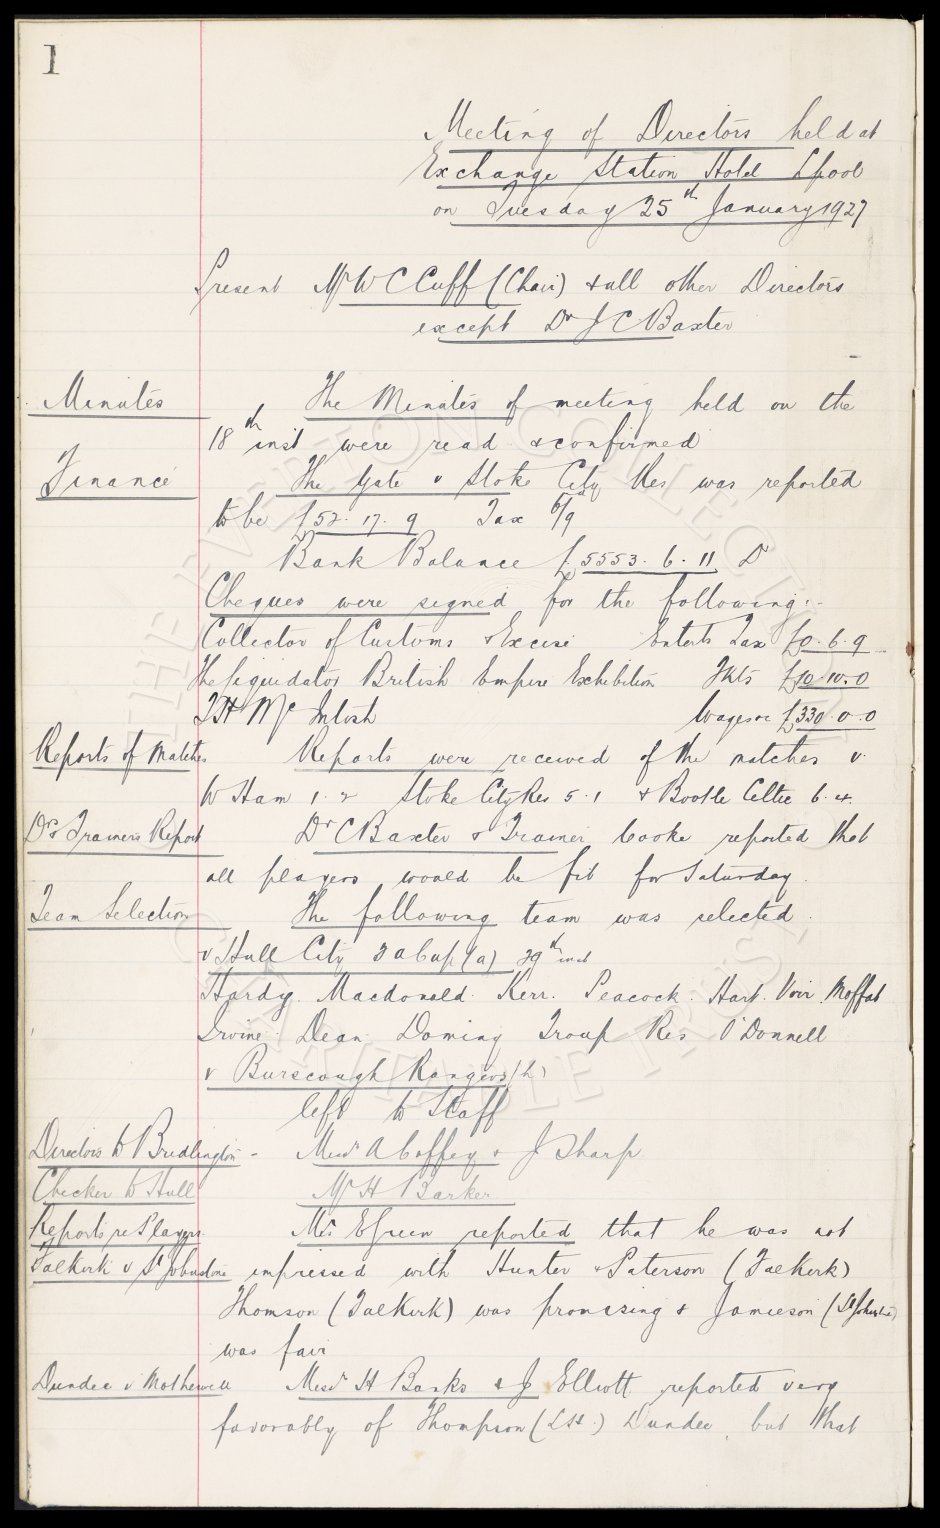 1
Meeting of Directors held at
Exchange Station Hotel Lpool
on Tuesday 25th January 1927
Present Mr W C Cuff (Chair) & all other Directors
except Dr J C Baxter
Minutes The Minutes of meeting held on the
18th inst were read & confirmed
Finance The Gate v Stoke City Res was reported
to be £52.17.9 Tax 6/9
Bank Balance £5553.6.11 Dr
Cheques were signed for the following:-
Collector of Customs & Excise Enterts Tax £0.6.9
The Liquidator British Empire Exhibition Tkts £10.10.0
T H McIntosh Wages &c £330.0.0
Reports of Matches Reports were received of the matches v.
W Ham 1.2 Stoke City Res 5.1 & Bootle Celtic 6.4.
Drs & Trainers Report Dr C Baxter & Trainer Cooke reported that
all players would be fit for Saturday.
Team Selection The following team was selected.
v Hull City Fa Cup (a) 29th inst
Hardy. Macdonald. Kerr. Peacock. Hart. Virr. Moffat
Irvine. Dean. Dominy Troup Res O'Donnell
v Burscough Rangers (h)
left to Staff
Directors to Bridlington - Messrs A Coffey & J Sharp.
Checker to Hull Mr H Barker
Reports re Players Mr E Green reported that he was not
Falkirk v St Johnstone impressed with Hunter & Paterson (Falkirk)
Thomson (Falkirk) was promising & Jamieson (St Johnstone)
was fair
Dundee v Motherwell Messrs H Banks & J Elliott reported very
favorably of Thompson (LH.) Dundee, but that
THE EVERTON COLLECTION
CHARITABLE TRUST